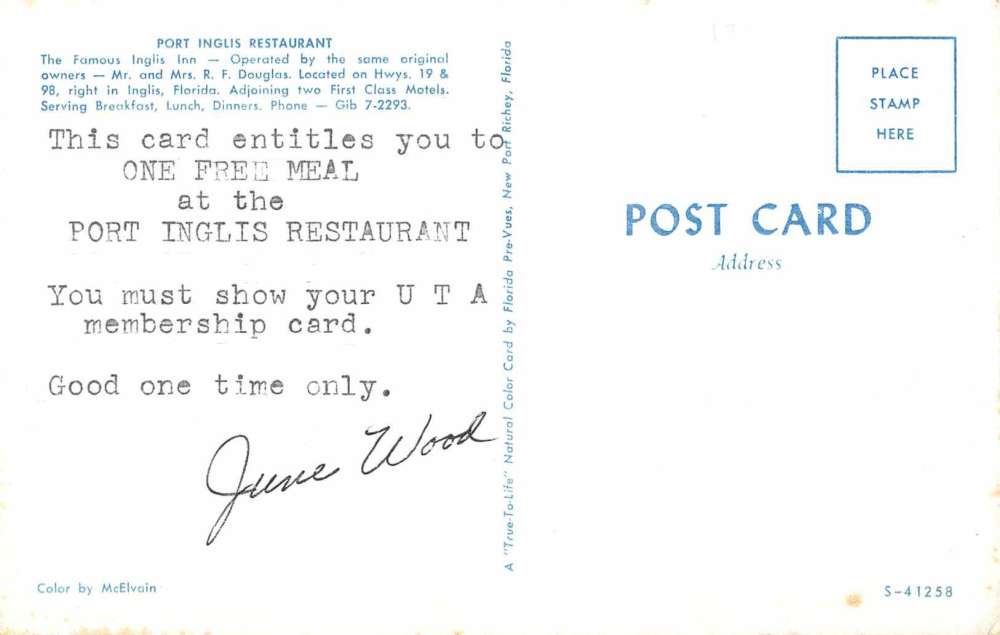 PORT INGLIS RESTAURANT
The Famous Inglis Inn — Operated by the same original
owners — Mr. and Mrs. R. F. Douglas. Located on Hwys. 19 &
98, right in Inglis, Florida. Adjoining two First Class Motels.
Serving Breakfast, Lunch, Dinners. Phone — Gib 7-2293.
This card entitles you to
ONE FREE MEAL
at the
PORT INGLIS RESTAURANT
You must show your U T A
membership card.
Good one time only.
June Wood
Color by McElvain
A "True-To-Life" Natural Color Card by Florida Pre-Vues, New Port Richey, Florida
PLACE
STAMP
HERE
POST CARD
Address
S-41258